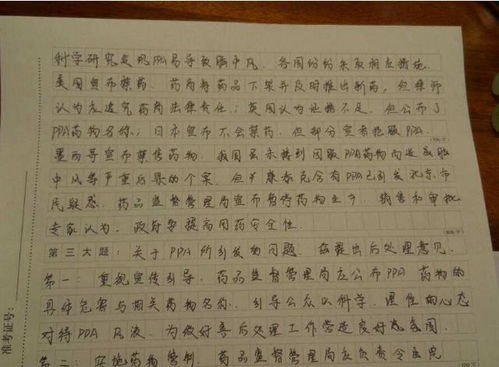 科学研究发现PPA易导致脑中风，各国纷纷采取相应措施。
美国宣布禁药，药商将药品下架并及时推出新药，但律师
认为应追究药商法律责任；英国认为证据不足，但公布了
PPA药物名称；日本宣布不会禁药，但部分患者抱怨PPA
墨西哥宣布禁售药物。我国虽未接到因服PPA药物而造成脑
中风等严重后果的个案，但康泰克含有PPA已引发北京市
民疑惑。药品监督管理局宣布暂停药物生产、销售和审批
专家认为，政府要提高用药安全性。
第三大题：关于PPA所引发的问题，兹提出后处理意见。
第一：重视宣传引导。药品监督管理局应公布PPA药物的
具体危害与相关药物名称，引导公众以科学、理性的心态
对待PPA风波，为做好善后处理工作营造良好氛围。
第二：实施药物管制。药品监督管理局应负责令医院
准考证号：